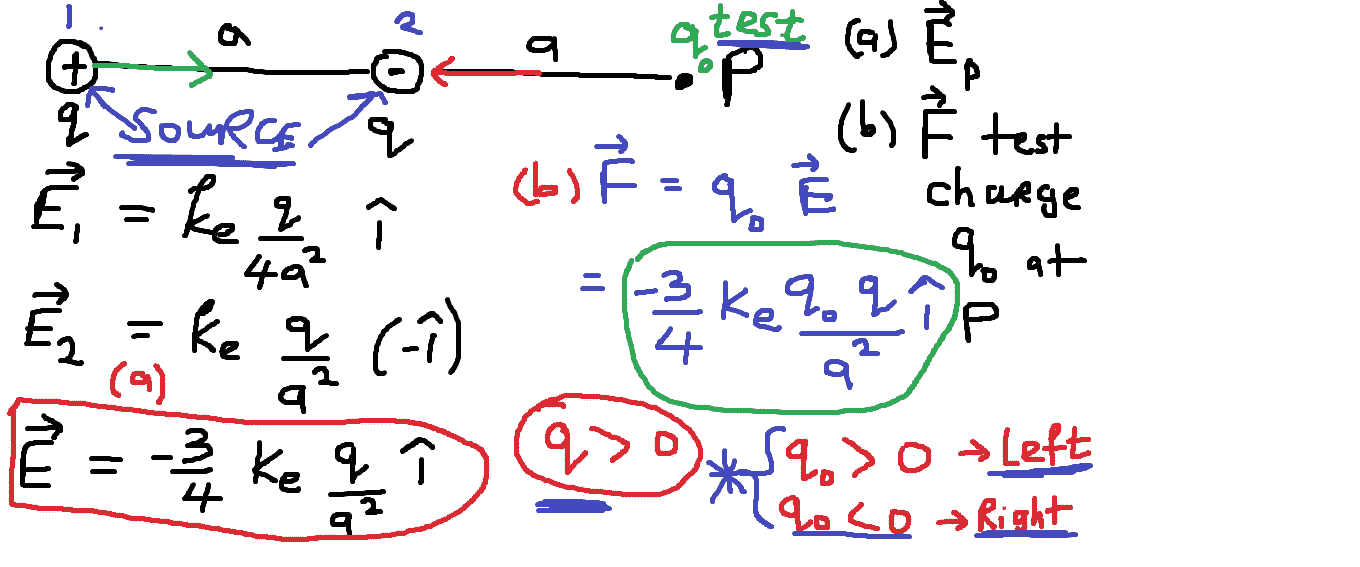 1 a 2 a q₀ test P
+ -
q SOURCE q
(a) E⃗ₚ
(b) F⃗ test
charge
q₀ at
P
E⃗₁ = kₑ q/4a² î
E⃗₂ = kₑ q/a² (-î)
(a)
E⃗ = -3/4 kₑ q/a² î
(b) F⃗ = q₀ E⃗
= -3/4 kₑ q₀ q/a² î
q > 0
* { q₀ > 0 → Left
q₀ < 0 → Right